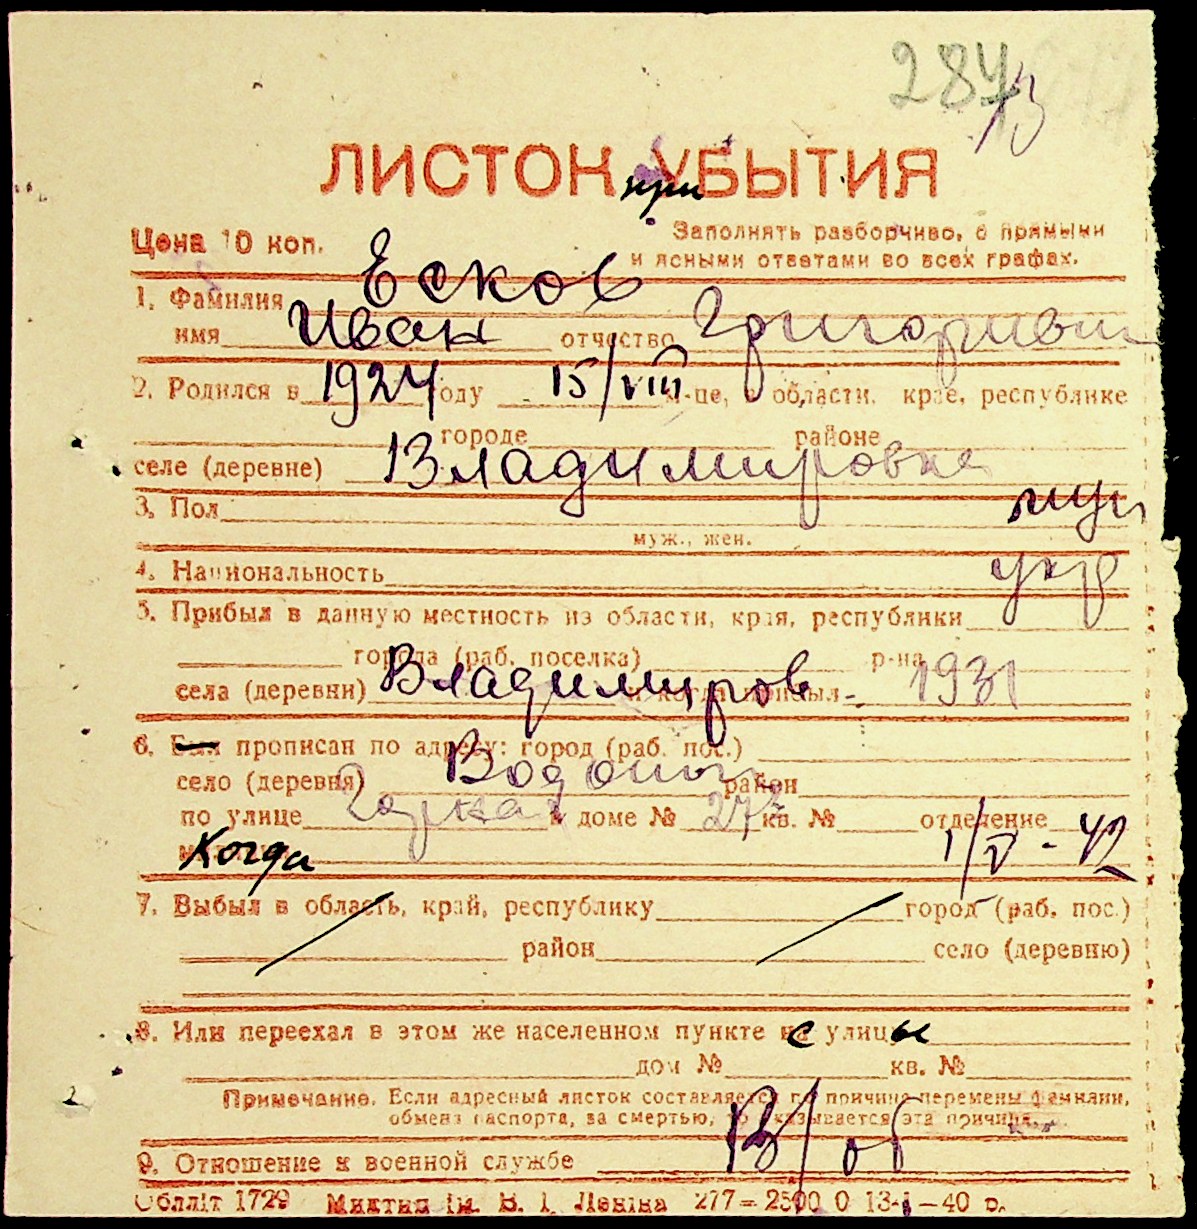 287
13
ЛИСТОК при УБЫТИЯ
Цена 10 коп.
Заполнять разборчиво, с прямыми
и ясными ответами во всех графах.
1. Фамилия Есков
имя Иван отчество Григоривич
2. Родился в 1924 году 15/VIII м-це, в области, крае, республике
городе районе
селе (деревне) Владимировке
3. Пол муж
муж., жен.
4. Национальность укр
5. Прибыл в данную местность из области, края, республики
города (раб. поселка) р-на
села (деревни) Владимиров и когда прибыл - 1931
6. Был прописан по адресу: город (раб. пос.)
село (деревня) Водопой район
по улице в доме № 273 кв. № отделение
Когда 1/V - 42
7. Выбыл в область, край, республику город (раб. пос.)
район село (деревню)
8. Или переехал в этом же населенном пункте с улицы
дом № кв. №
Примечание. Если адресный листок составляется по причине перемены фамилии,
обмена паспорта, за смертью, то указывается эта причина.
9. Отношение к военной службе В/об
Обллiт 1729 Миктип iм. В. I. Ленiна 277=2500 0 13-1-40 р.